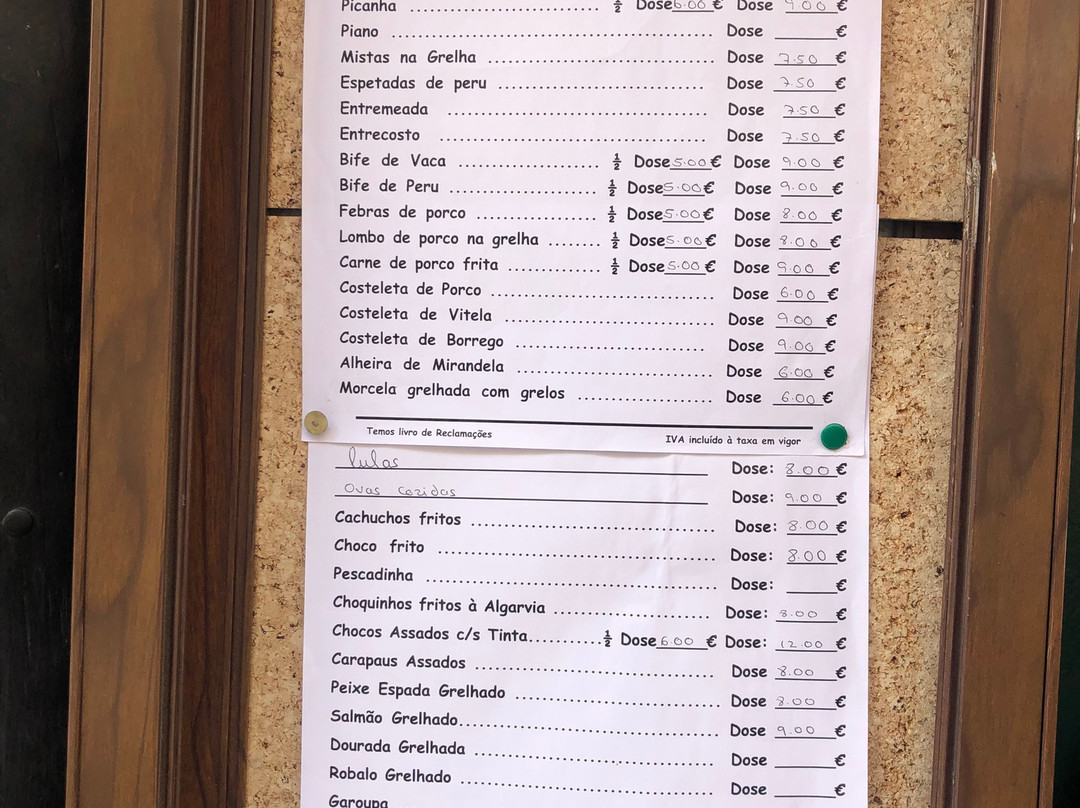 Picanha ........................... ½ Dose 6.00 € Dose 9.00 €
Piano ...................................................... Dose ______€
Mistas na Grelha ...................................... Dose 7.50 €
Espetadas de peru ................................... Dose 7.50 €
Entremeada ........................................... Dose 7.50 €
Entrecosto ............................................. Dose 7.50 €
Bife de Vaca ........................ ½ Dose 5.00 € Dose 9.00 €
Bife de Peru ......................... ½ Dose 5.00 € Dose 9.00 €
Febras de porco .................... ½ Dose 5.00 € Dose 8.00 €
Lombo de porco na grelha ........ ½ Dose 5.00 € Dose 8.00 €
Carne de porco frita ............... ½ Dose 5.00 € Dose 9.00 €
Costeleta de Porco ...................................... Dose 6.00 €
Costeleta de Vitela ................................... Dose 9.00 €
Costeleta de Borrego ................................ Dose 9.00 €
Alheira de Mirandela ................................. Dose 6.00 €
Morcela grelhada com grelos ....................... Dose 6.00 €
Temos livro de Reclamações IVA incluído à taxa em vigor
lulas Dose: 8.00 €
Ovas cozidas Dose: 9.00 €
Cachuchos fritos ......................................... Dose: 8.00 €
Choco frito ............................................... Dose: 8.00 €
Pescadinha ................................................ Dose: ______€
Choquinhos fritos à Algarvia ........................... Dose: 8.00 €
Chocos Assados c/s Tinta............½ Dose 6.00 € Dose: 12.00 €
Carapaus Assados ......................................... Dose 8.00 €
Peixe Espada Grelhado ................................... Dose 8.00 €
Salmão Grelhado........................................... Dose 9.00 €
Dourada Grelhada ......................................... Dose ______€
Robalo Grelhado ........................................... Dose ______€
Garoupa